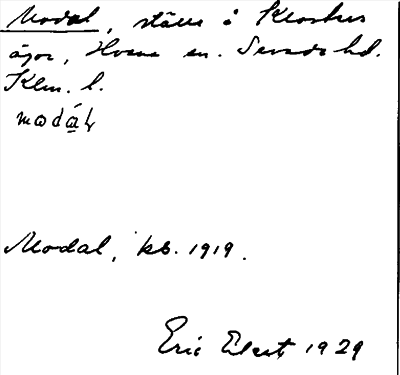 Modal, ställe å Klosters
ägor, Hvena sn. Sevede hd.
Klm. l.
modál
Modal, kb. 1919.
Eric Elest 1929